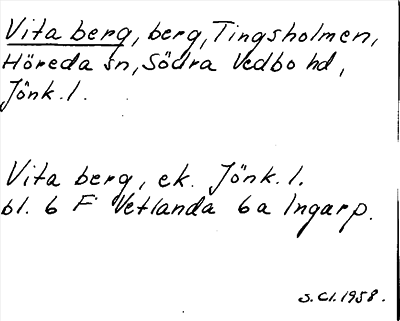 Vita berg, berg, Tingsholmen,
Höreda sn, Södra Vedbo hd,
Jönk.l.
Vita berg, ek. Jönk.l.
bl. 6 F Vetlanda 6a Ingarp.
S.Cl.1958.